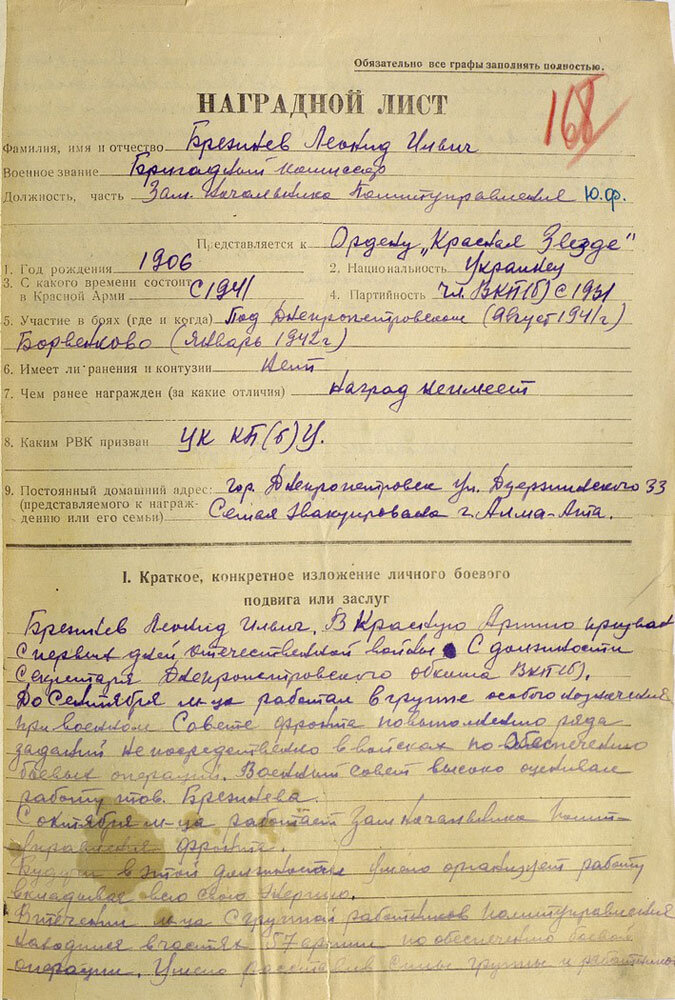 Обязательно все графы заполнять полностью.
168
НАГРАДНОЙ ЛИСТ
Фамилия, имя и отчество Брежнев Леонид Ильич
Военное звание Бригадный комиссар
Должность, часть Зам. Начальника Политуправления Ю.Ф.
Представляется к Ордену „Красная Звезда"
1. Год рождения 1906 2. Национальность Украинец
3. С какого времени состоит в Красной Армии с 1941 4. Партийность чл. ВКП(б) с 1931
5. Участие в боях (где и когда) Под Днепропетровском (Август 1941г)
Борвенково (Январь 1942г)
6. Имеет ли ранения и контузии Нет
7. Чем ранее награжден (за какие отличия) Наград неимеет
8. Каким РВК призван ЦК КП(б)У.
9. Постоянный домашний адрес: гор. Днепропетровск ул. Дзержинского 33
(представляемого к награждению или его семьи) Семья эвакуирована г. Алма-Ата.
I. Краткое, конкретное изложение личного боевого
подвига или заслуг
Брежнев Леонид Ильич. В Красную Армию призван
с первых дней отечественной войны с должности
Секретаря Днепропетровского обкома ВКП(б).
До Сентября м-ца работал в группе особого назначения
при военном Совете фронта по выполнению ряда
заданий непосредственно в войсках по обеспечению
боевых операций. Военный совет высоко оценивал
работу тов. Брежнева.
С октября м-ца работает Зам начальника Полит-
управления фронта.
Будучи в этой должности умело организует работу
вкладывая всю свою энергию.
В течении м-ца с группой работников Политуправления
находился в частях 57 армии по обеспечению боевой
операции. Умело расставив силы группы и работников